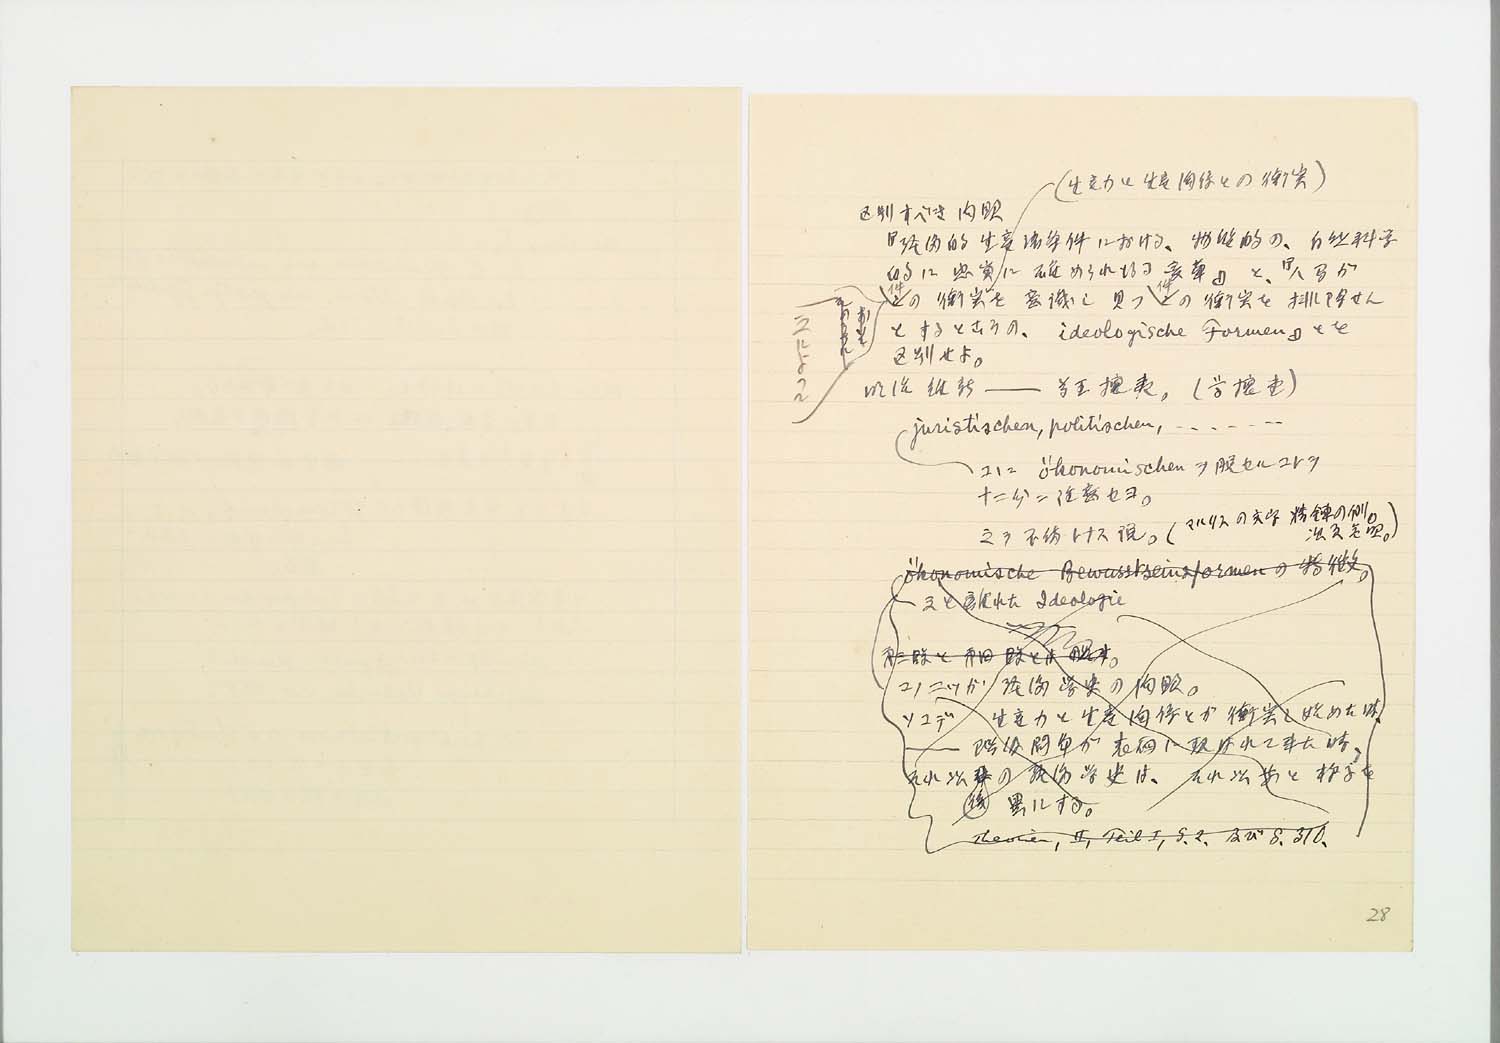 (生産力と生産関係との衝突)
区別すべき問題
『経済的生産諸条件における、物質的の、自然科学
的に忠実に確められ得る変革』と、『人間が
件の衝突を意識し且つ件の衝突を排除せん
とするところの、ideologische Formen』とを
区別せよ。
によつて
明治維新 —— 尊王攘夷。(
juristischen, politischen, - - - - - - -
コヽニ ökonomischen ヲ脱セルコトヲ
十二分ニ注意セヨ。
之ヲ不備トナス説。(マルクスの文字精錬の例。
ökonomische Bewusstseinsformen の特徴。
之と離れた Ideologie
コノ二ツが経済学史の問題。
ソコデ 生産力と生産関係とが衝突し始めた時、
—— 階級闘争が表面に現はれて来た時、
それ以後の経済学史は、それ以前と様子を
異にする。
Theorien, II, Teil I, S. 2. 及び S. 310.
28